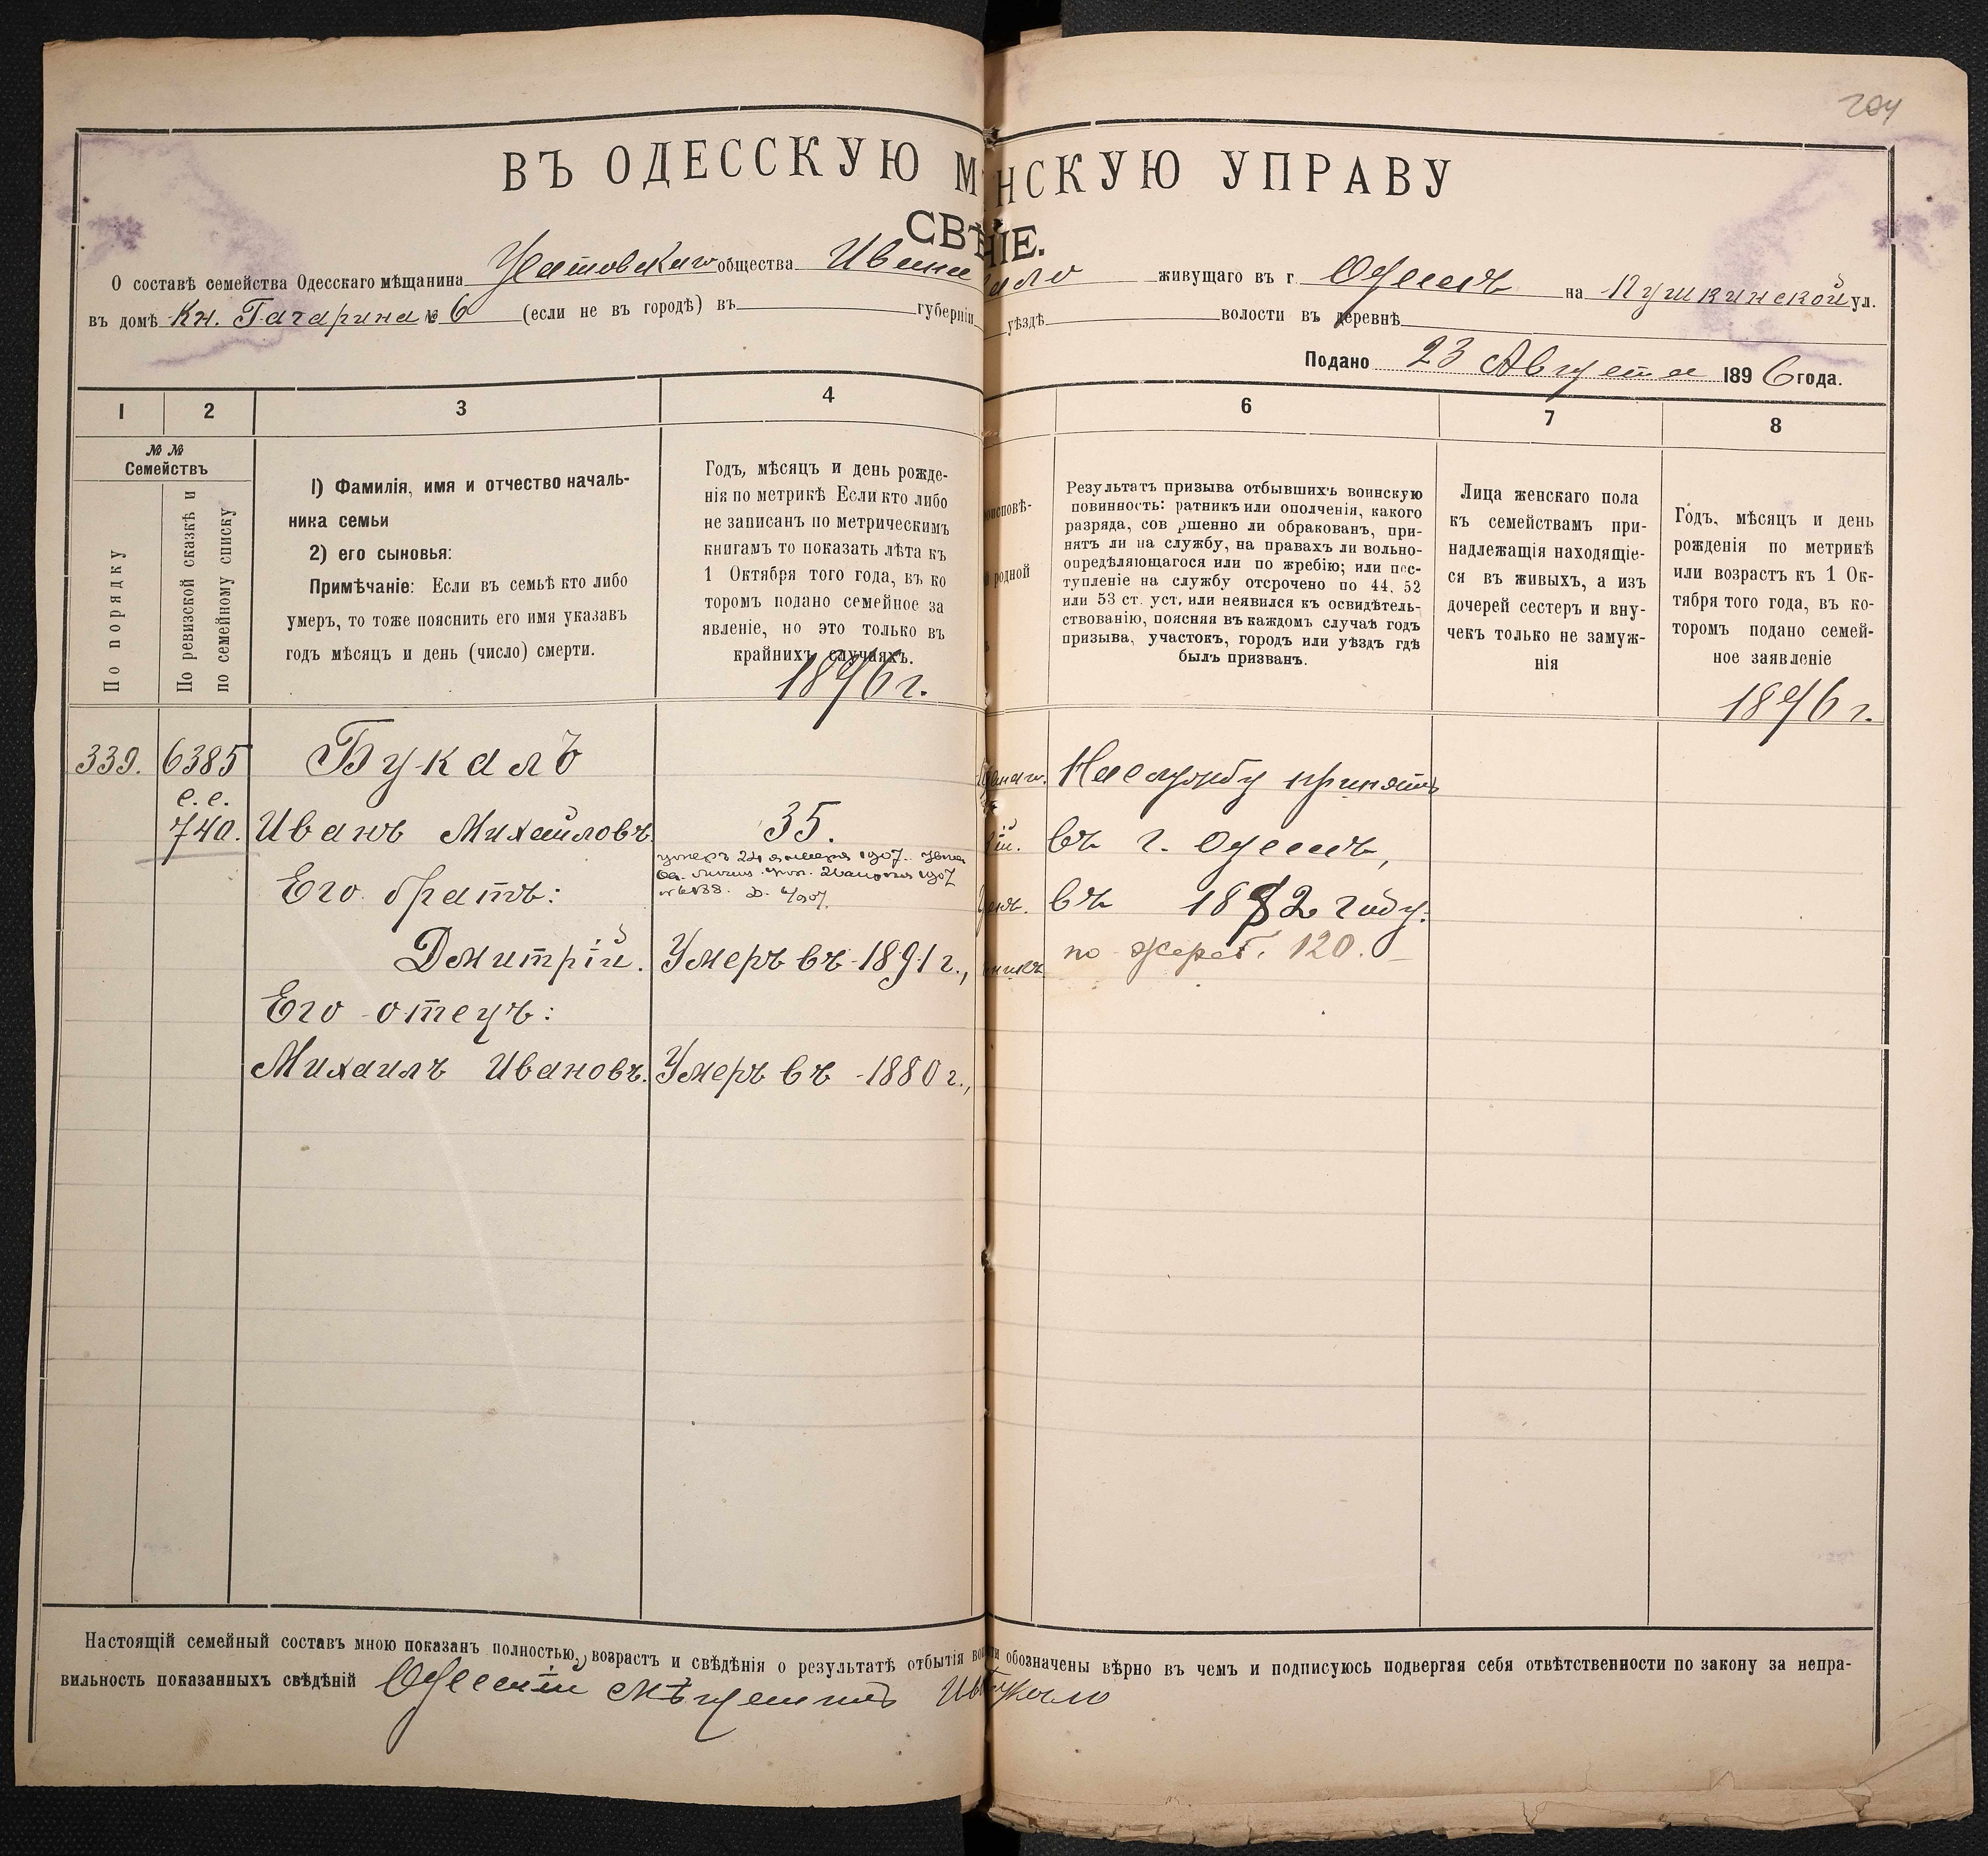 204
ВЪ ОДЕССКУЮ М НСКУЮ УПРАВУ
СВѢ НІЕ.
О составѣ семейства Одесскаго мѣщанина Усатовскаго общества Ивана ало живущаго въ г. Одессѣ на Пушкинской ул.
въ домѣ Кн. Гагарина № 6 (если не въ городѣ) въ губерніи уѣздѣ волости въ деревнѣ
Подано 23 Августа 1896 года.
1 2 3 4 6 7 8
№ № Семействъ
По порядку
По ревизской сказкѣ и
по семейному списку
1) Фамилія, имя и отчество началь-
ника семьи
2) его сыновья:
Примѣчаніе: Если въ семьѣ кто либо
умеръ, то тоже пояснить его имя указавъ
годъ мѣсяцъ и день (число) смерти.
Годъ, мѣсяцъ и день рожде-
нія по метрикѣ Если кто либо
не записанъ по метрическимъ
книгамъ то показать лѣта къ
1 Октября того года, въ ко
торомъ подано семейное за
явленіе, но это только въ
крайнихъ случаяхъ.
1896 г.
роисповѣ-
родной
Результатъ призыва отбывшихъ воинскую
повинность: ратникъ или ополченія, какого
разряда, сов ршенно ли обракованъ, при-
нятъ ли на службу, на правахъ ли вольно-
опредѣляющагося или по жребію; или пос-
тупленіе на службу отсрочено по 44, 52
или 53 ст. уст, или неявился къ освидѣтель-
ствованію, поясняя въ каждомъ случаѣ годъ
призыва, участокъ, городъ или уѣздъ гдѣ
былъ призванъ.
Лица женскаго пола
къ семействамъ при-
надлежащія находящіе-
ся въ живыхъ, а изъ
дочерей сестеръ и вну-
чекъ только не замуж-
нія
Годъ, мѣсяцъ и день
рожденія по метрикѣ
или возрастъ къ 1 Ок-
тября того года, въ ко-
торомъ подано семей-
ное заявленіе
1896 г.
339. 6385 Букалъ
На службу принятъ
с. с.
740. Иванъ Михайловъ 35.
въ г. Одессѣ,
умеръ 24 января 1907
1907
Его братъ:
въ 1882 году.
Дмитрій. Умеръ въ 1891 г.,
по жреб. 120.
Его отецъ:
Михаилъ Ивановъ. Умеръ въ 1880 г.,
Настоящій семейный составъ мною показанъ полностью, возрастъ и свѣдѣнія о результатѣ отбытія во обозначены вѣрно въ чемъ и подписуюсь подвергая себя отвѣтственности по закону за непра-
вильность показанныхъ свѣдѣній Одесскій Мѣщанинъ